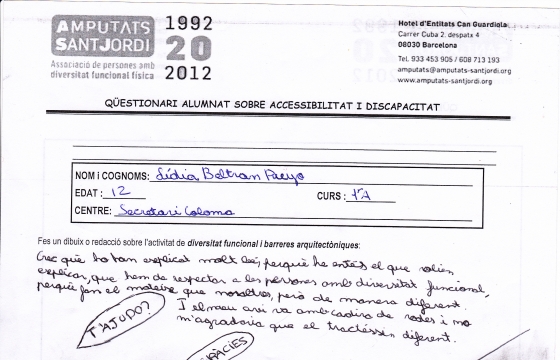 AMPUTATS
SANT JORDI
1992
20
2012
Associació de persones amb
diversitat funcional física
Hotel d'Entitats Can Guardiola
Carrer Cuba 2. despatx 4
08030 Barcelona
Tel. 933 453 905 / 608 713 193
amputats@amputats-santjordi.org
www.amputats-santjordi.org
QÜESTIONARI ALUMNAT SOBRE ACCESSIBILITAT I DISCAPACITAT
NOM i COGNOMS: Lídia Beltran
EDAT : 12 CURS : 1rA
CENTRE: Secretari Coloma
Fes un dibuix o redacció sobre l'activitat de diversitat funcional i barreres arquitectòniques:
Crec que ho han explicat molt bé, perquè he entès el que volien
explicar, que hem de respectar a les persones amb diversitat funcional,
perquè fan el mateix que nosaltres, però de manera diferent.
T'AJUDO?
I el meu avi va amb cadira de rodes i no
m'agradaria que el tractéssin diferent.
GRÀCIES